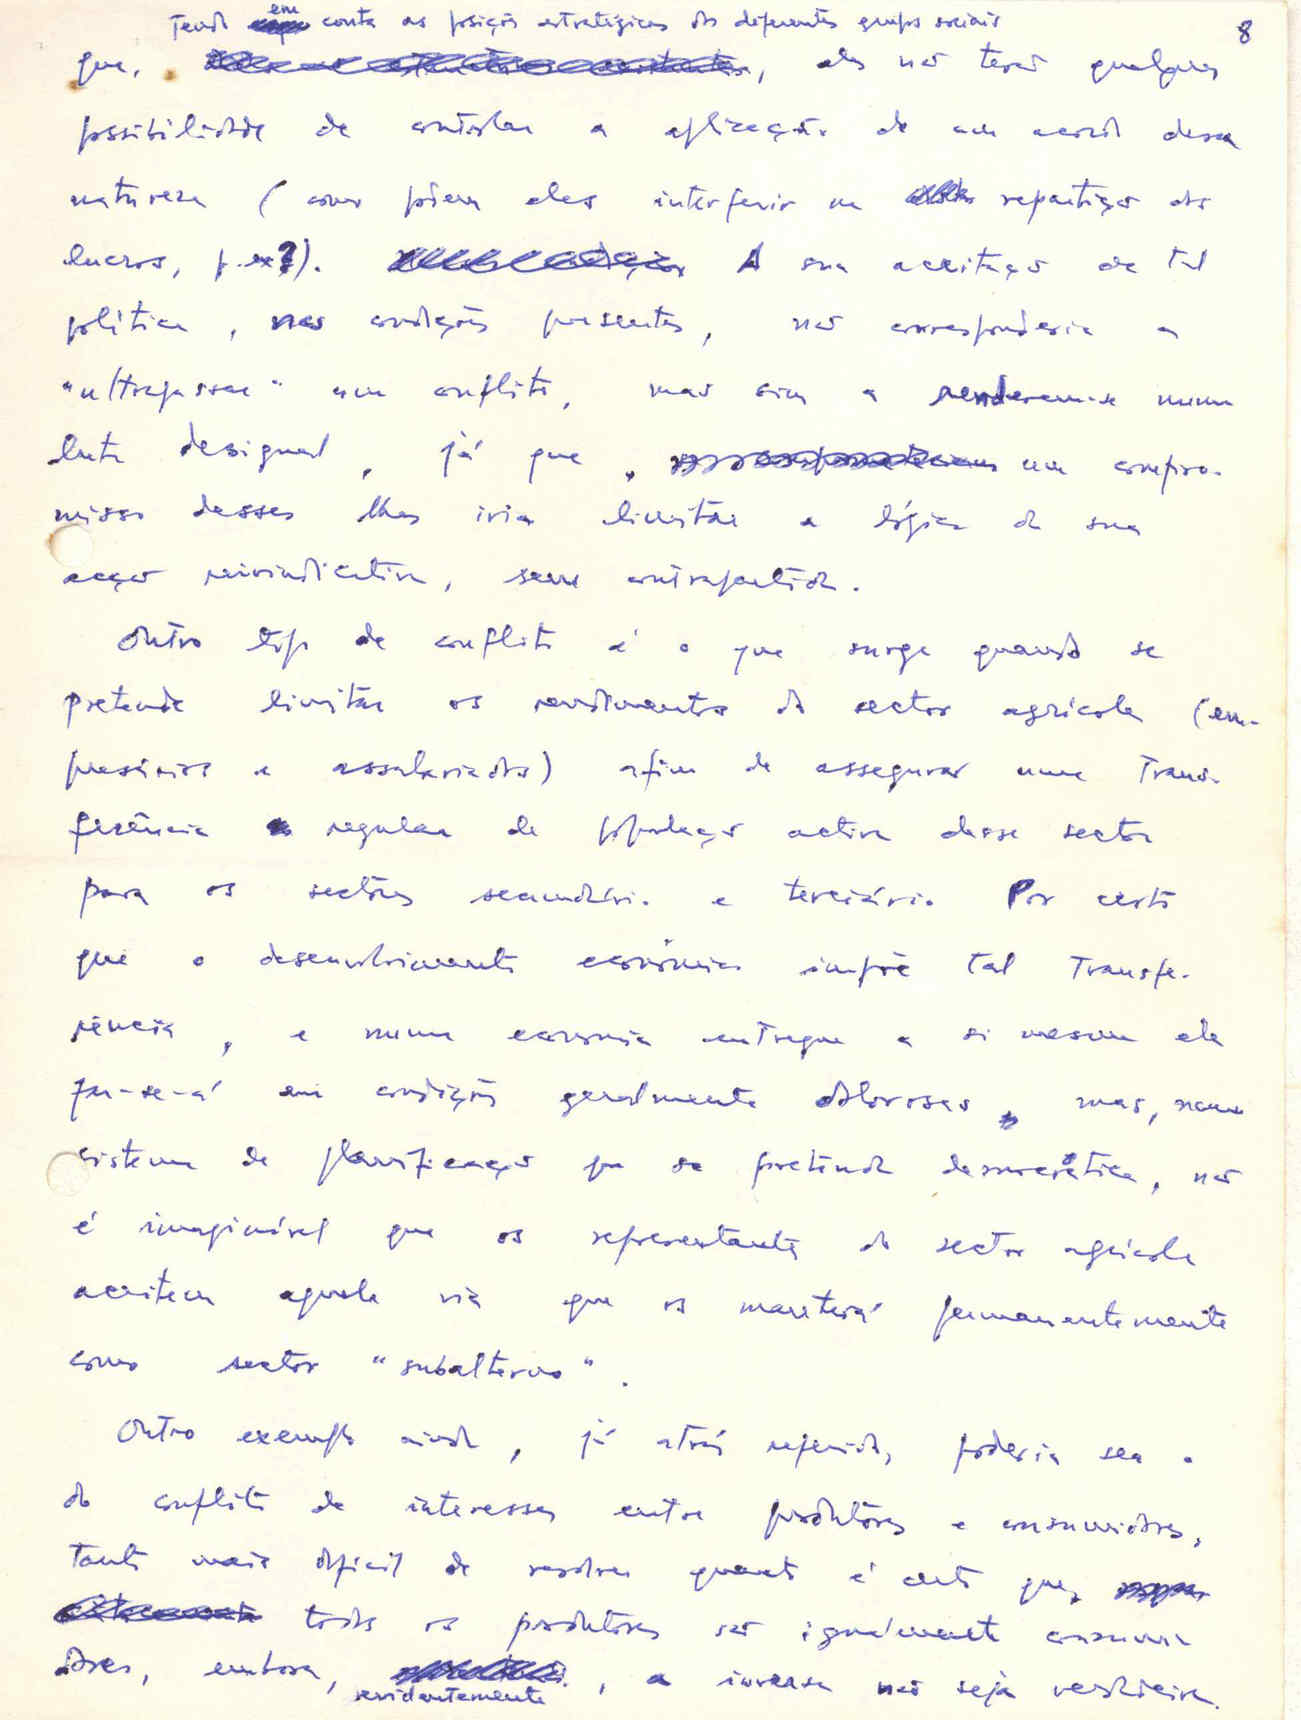 8
Tendo em conta as posições estratégicas dos diferentes grupos sociais
que, , eles não terão qualquer
possibilidade de controlar a aplicação de um acordo dessa
natureza (como podem eles interferir na repartição dos
lucros, p. ex?). A sua aceitação de tal
política, nas condições presentes, não corresponderia a
"ultrapassar" um conflito, mas sim a renderem-se numa
luta desigual, já que, um compro-
misso desses lhes iria limitar a lógica da sua
acção reivindicativa, sem contrapartida.
Outro tipo de conflito é o que surge quando se
pretende limitar os rendimentos do sector agrícola (em-
presários e assalariados) afim de assegurar uma trans-
ferência regular de população activa desse sector
para os sectores secundário e terciário. Por certo
que o desenvolvimento económico impõe tal transfe-
rência, e numa economia entregue a si mesma ela
far-se-á em condições geralmente dolorosas, mas, num
sistema de planificação que se pretenda democrática, não
é imaginável que os representantes do sector agrícola
aceitem aquela via que os manterá permanentemente
como sector "subalterno".
Outro exemplo ainda, já atrás referido, poderia ser o
do conflito de interesses entre produtores e consumidores,
tanto mais difícil de resolver quanto é certo que,
todos os produtores são igualmente consumi-
dores, embora, evidentemente, a inversa não seja verdadeira.